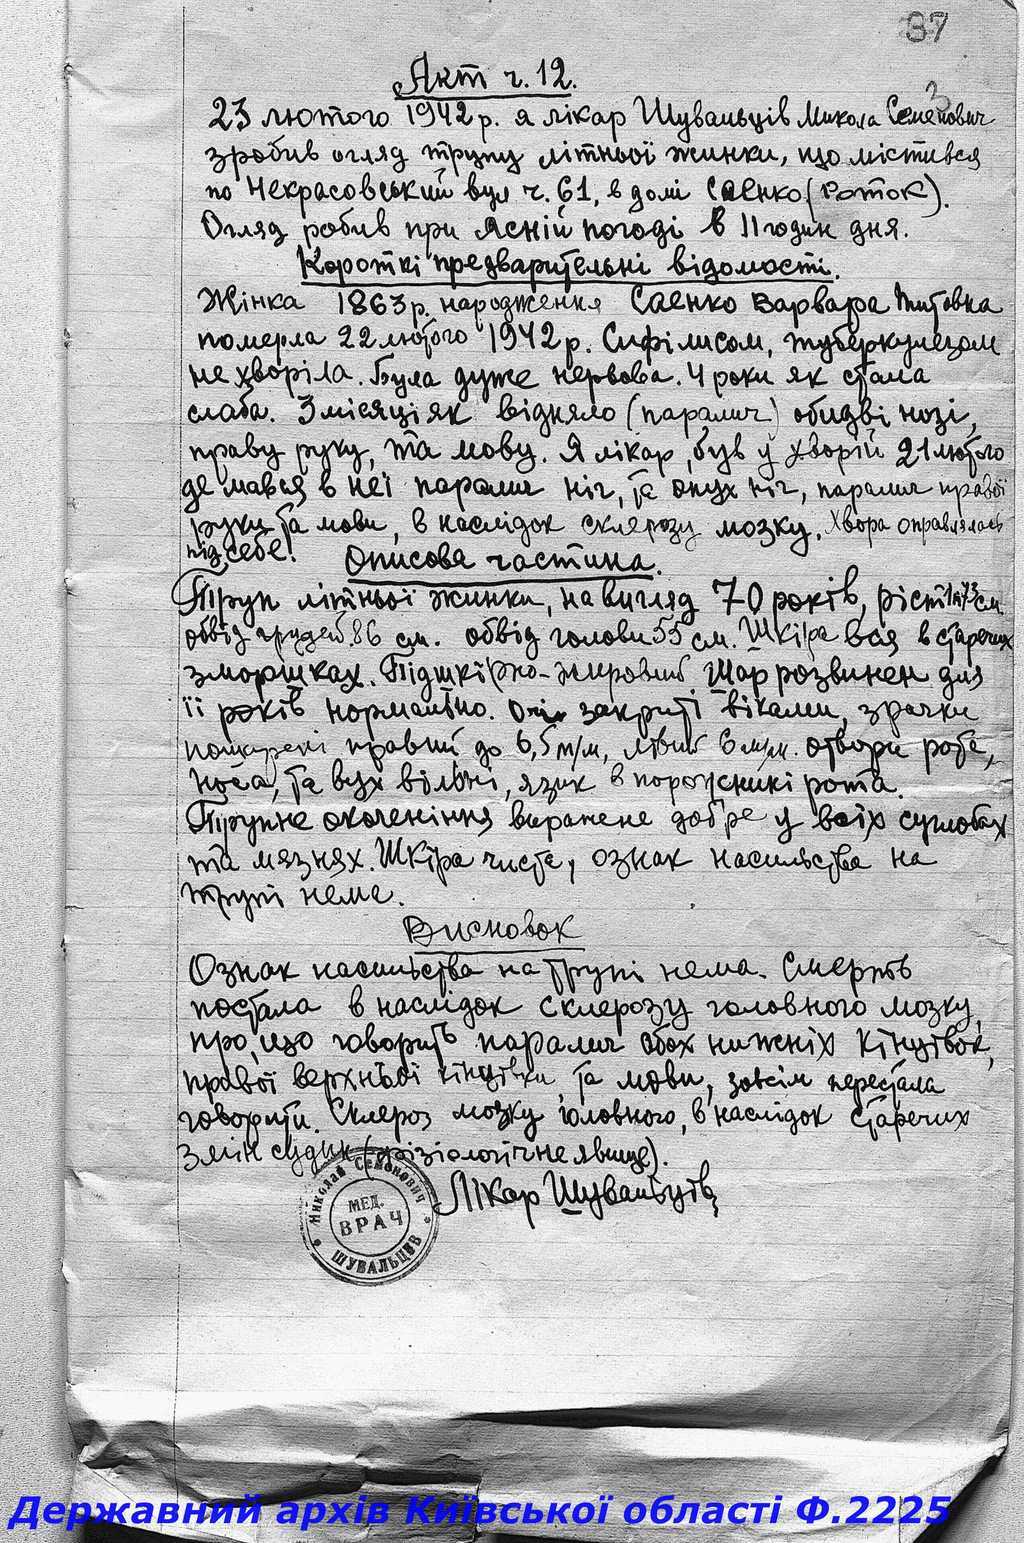 37
3
Акт ч. 12.
23 лютого 1942 р. я лікар Шувальців Микола Семенович
зробив огляд трупу літньої жинки, що містився
по Некрасовський вул ч. 61, в домі Саєнко (роток).
Огляд робив при ясній погоді в 11 годин дня.
Короткі предварительні відомості.
Жінка 1863 р. народження Саенко Варвара Титовна
померла 22 лютого 1942 р. Сифілисом, туберкулезом
не хворіла. Була дуже нервова. 4 роки як стала
слаба. 3 місяці як відняло (паралич) обидві нозі,
праву руку, та мову. Я лікар, був у хворій 21 лютого
де мався в неї паралич ніг, та опух ніг, паралич правої
руки та мови, в наслідок склерозу мозку. Хвора оправлялась
під себе.
Описова частина.
Труп літньої жинки, на вигляд 70 років, ріст см.
обвід грудей 86 см. обвід голови 55 см. Шкіра вся в старечих
зморшках. Підшкірно-жировий шар розвинен для
її років нормально. Очи закриті віками, зрачки
поширені правий до 6,5 м/м, лівий 6 м/м. отвори рота,
носа, та вух вільні, язик в порожникі рота.
Трупне окоченіння виражене добре у всіх суглобах
та мязнях. Шкіра чиста, ознак насильства на
трупі нема.
Висновок
Ознак насильства на трупі нема. Смерть
постала в наслідок склерозу головного мозку,
про що говорить паралич обох нижніх кінцівок,
правої верхньої кінцівки, та мови, зовсім перестала
говорити. Склероз мозку головного, в наслідок старечих
змін судин (фізіологічне явище).
Лікар Шувальців
Николай Семонович
МЕД.
ВРАЧ
ШУВАЛЬЦЕВ
Державний архів Київської області Ф.2225